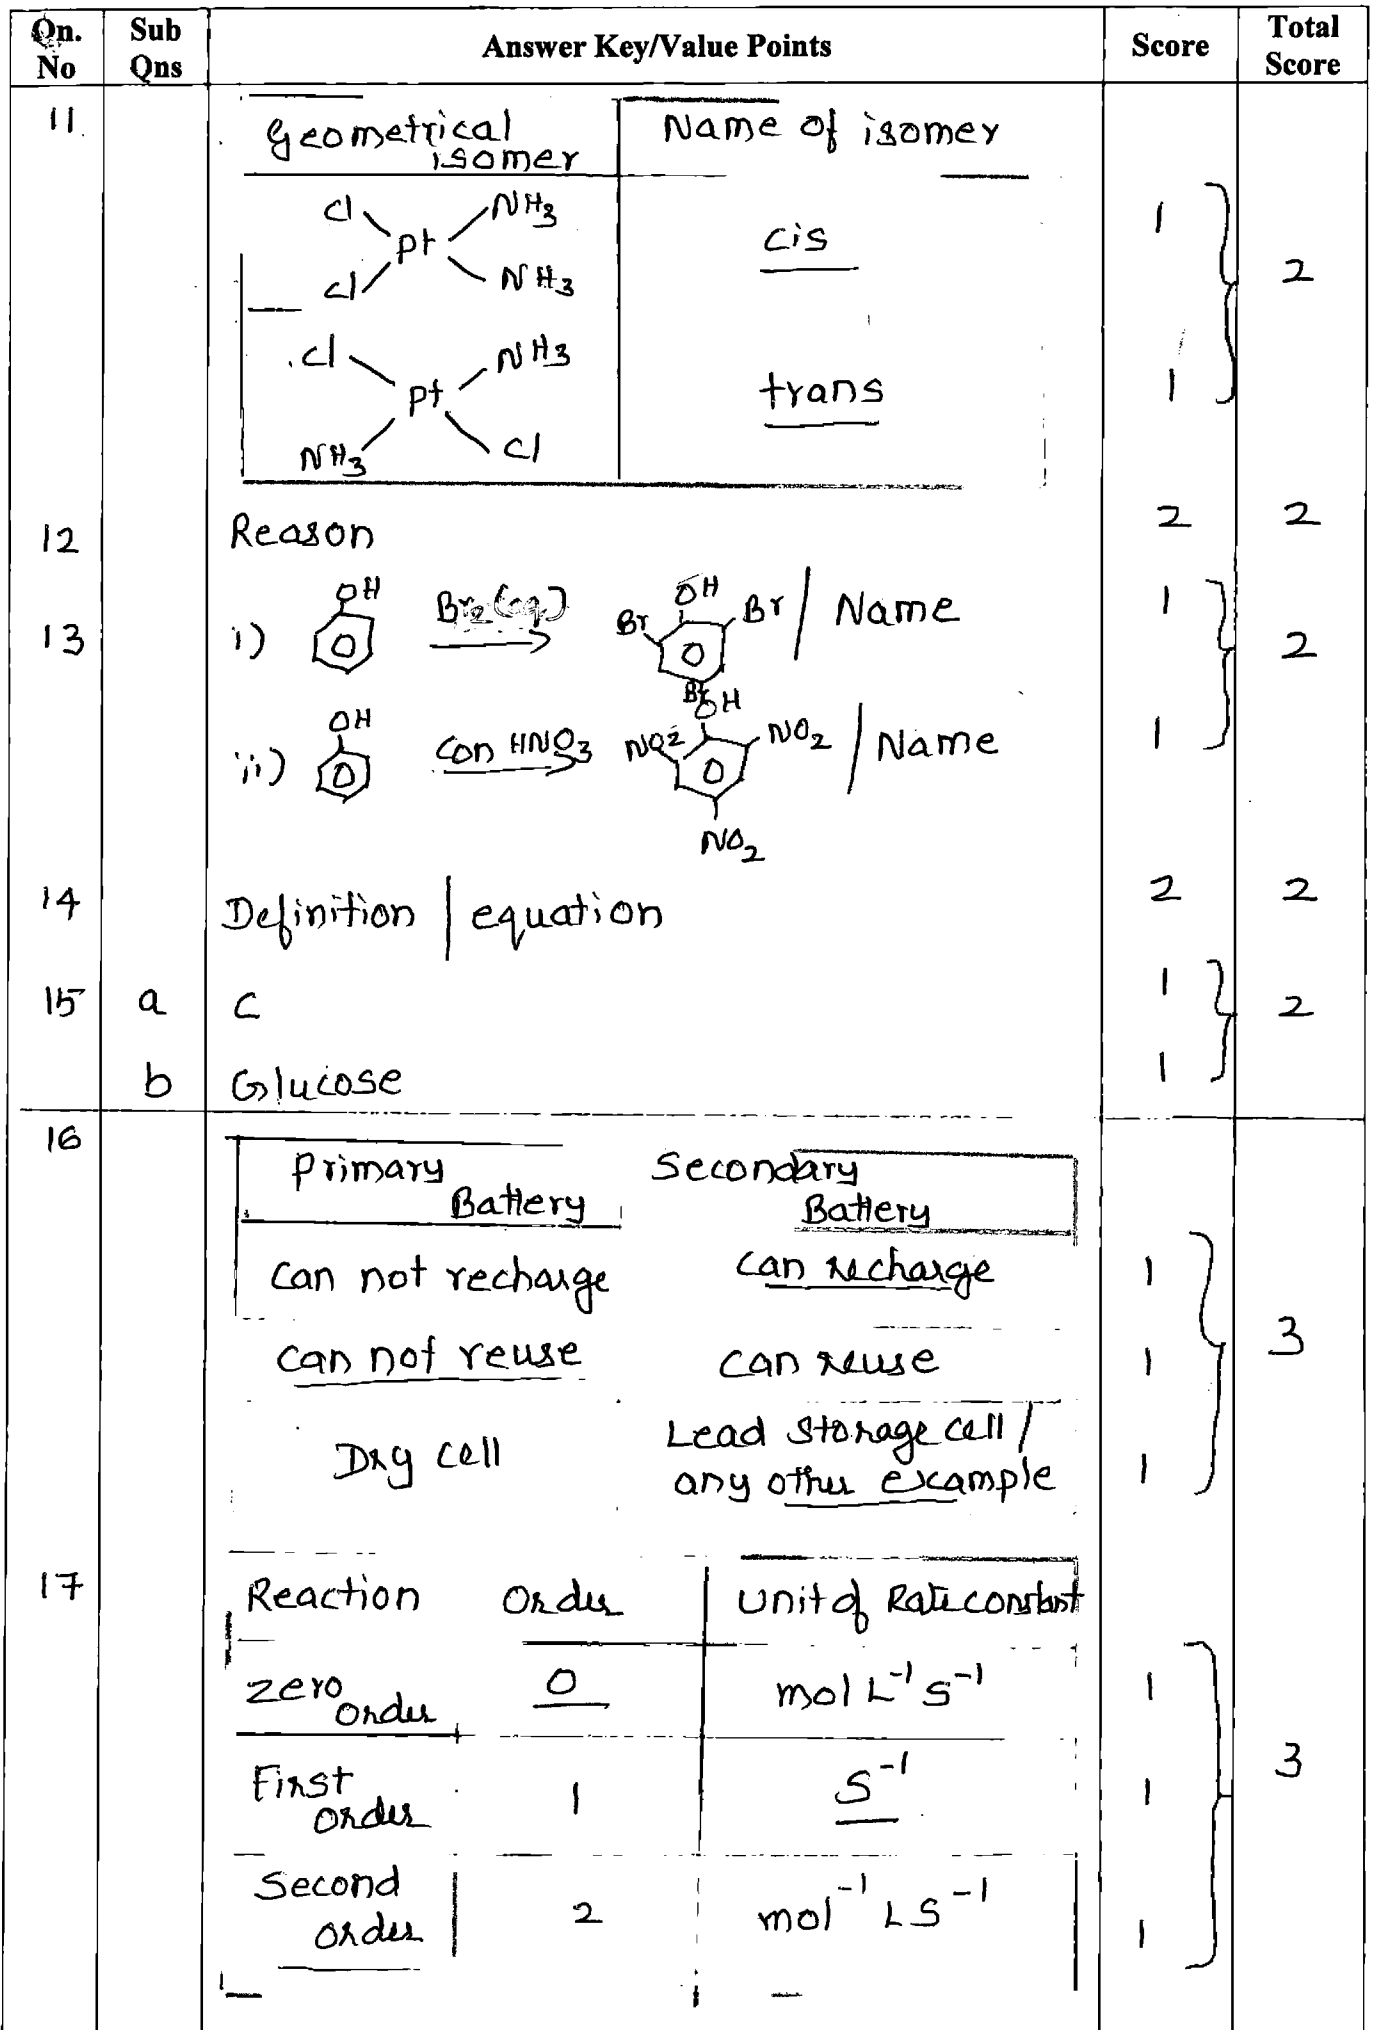 Qn. No | Sub Qns | Answer Key/Value Points | Score | Total Score
11 | Geometrical isomer | Name of isomer
Cl NH3
Pt | cis | 1
Cl NH3 | 2
Cl NH3
Pt | trans | 1
NH3 Cl
12 | Reason | 2 | 2
13 | i) OH Br2 (aq.) → OH Br Br Br / Name | 1 | 2
ii) OH Con HNO3 → OH NO2 NO2 NO2 / Name | 1
14 | Definition / equation | 2 | 2
15 | a | C | 1 | 2
b | Glucose | 1
16 | Primary Battery | Secondary Battery
can not recharge | can recharge | 1
can not reuse | can reuse | 1 | 3
Dry cell | Lead storage cell / any other example | 1
17 | Reaction | Order | Unit of Rate constant
zero order | 0 | mol L⁻¹ S⁻¹ | 1
First order | 1 | S⁻¹ | 1 | 3
Second order | 2 | mol⁻¹ L S⁻¹ | 1